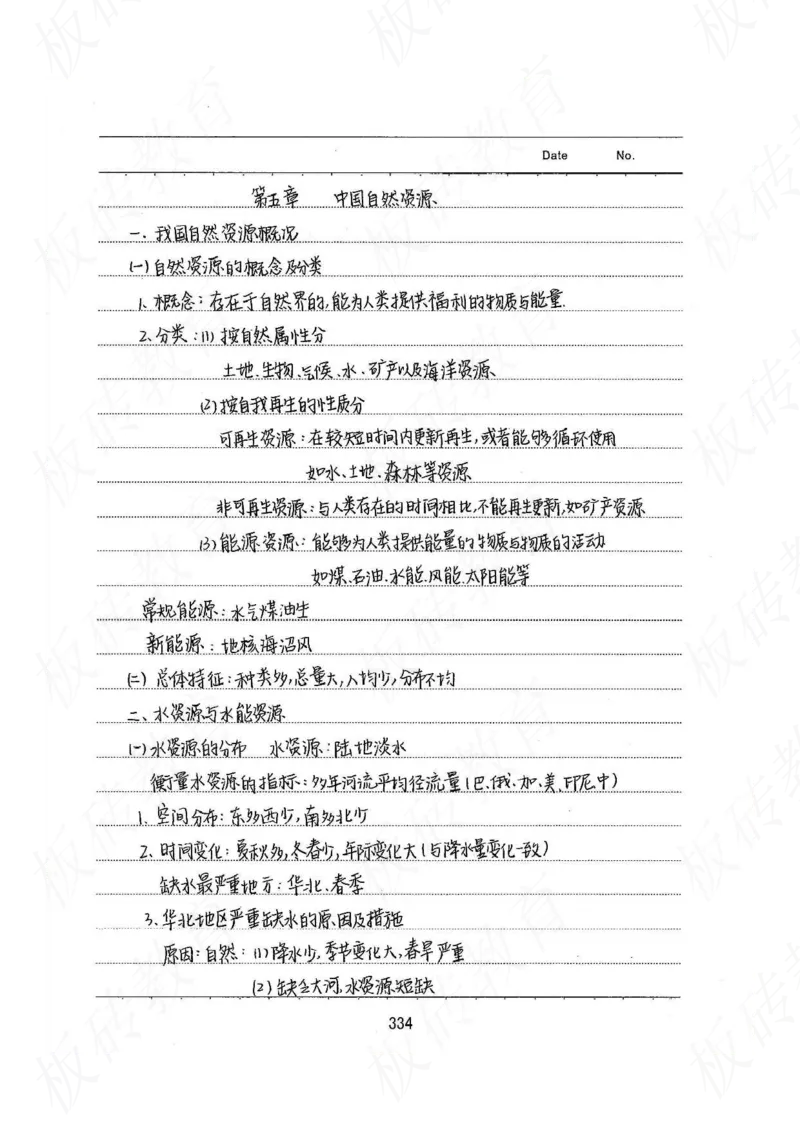 Date No.
第五章 中国自然资源
一、我国自然资源概况
(一)自然资源的概念及分类
1、概念:存在于自然界的,能为人类提供福利的物质与能量.
2、分类:(1) 按自然属性分
土地、生物、气候、水、矿产以及海洋资源
(2)按自我再生的性质分
可再生资源:在较短时间内更新再生,或者能够循环使用
如水、土地、森林等资源
非可再生资源:与人类存在的时间相比,不能再生更新,如矿产资源
(3)能源资源:能够为人类提供能量的物质与物质的活动
如煤、石油、水能、风能、太阳能等
常规能源:水气煤油生
新能源:地核海沼风
(二)总体特征:种类多,总量大,人均少,分布不均
二、水资源与水能资源
(一)水资源的分布 水资源:陆地淡水
衡量水资源的指标:多年河流平均径流量(巴、俄、加、美、印尼、中)
1、空间分布:东多西少,南多北少
2、时间变化:夏秋多,冬春少,年际变化大(与降水量变化一致)
缺水最严重地方:华北、春季
3、华北地区严重缺水的原因及措施
原因:自然:(1)降水少,季节变化大,春旱严重
(2)缺乏大河,水资源短缺
334
板砖教育